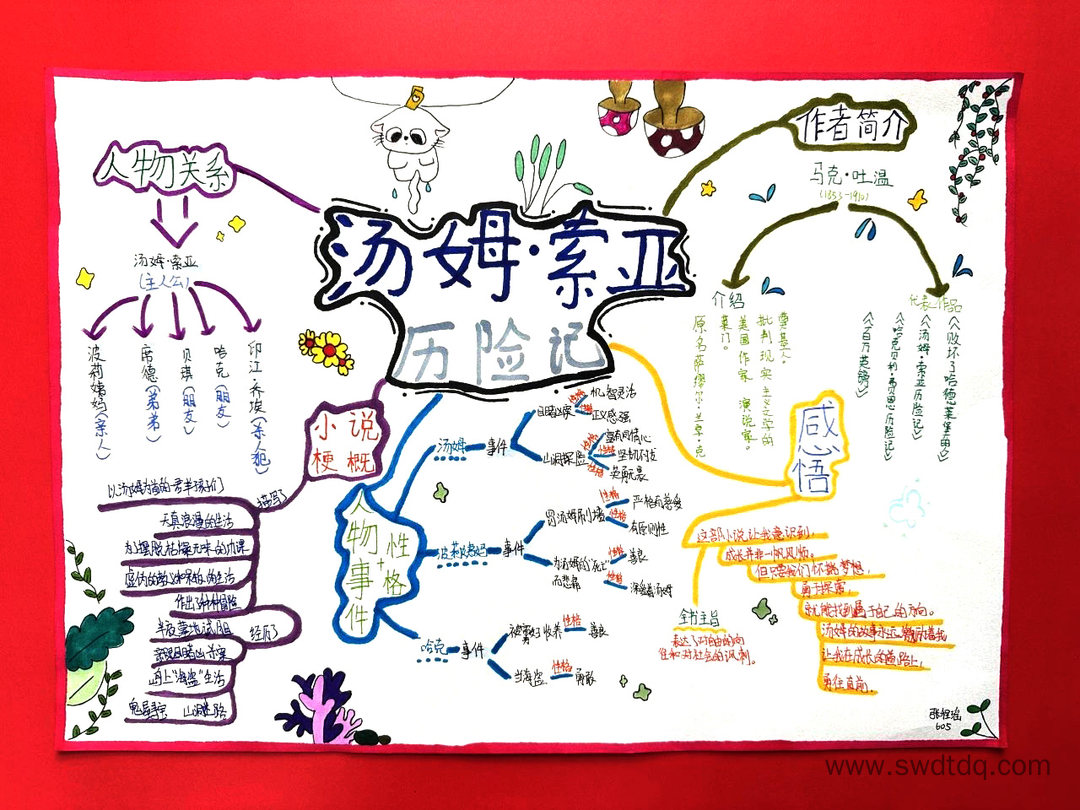 汤姆·索亚
历险记
人物关系
汤姆·索亚
(主人公)
波莉姨妈(亲人)
席德(弟弟)
贝琪(朋友)
哈克(朋友)
印江·乔埃(杀人犯)
作者简介
马克·吐温
介绍
原名萨缪尔·兰亨·克
莱门。
美国作家 演说家。
批判现实主义文学的
奠基人。
代表作品
《败坏了哈德莱堡的》
《汤姆·索亚历险记》
《哈克贝利·费恩历险记》
《百万英镑》
小说
梗概
描写了
以汤姆为首的一群孩子们
天真浪漫的生活
为摆脱枯燥无味的功课
作出种种冒险
经历了
半夜墓地试胆
亲眼目睹凶杀案
海上"海盗"生活
鬼屋寻宝 山洞迷路
人物事件
+
性格
汤姆
事件
目睹凶案
性格
机智灵活
性格
正义感强
山洞探险
性格
富有同情心
性格
坚韧不拔
性格
英勇无畏
波莉姨妈
事件
罚汤姆刷墙
性格
严格而慈爱
性格
有原则性
为汤姆的"死亡"
而悲痛
性格
善良
性格
深爱着汤姆
哈克
事件
被寡妇收养
性格
善良
当海盗
性格
勇敢
感悟
这部小说让我意识到,
成长并非一帆风顺。
但只要我们怀揣梦想,
勇于探索,
就能找到属于自己的方向。
汤姆的故事永远激励着我
让我在成长的道路上,
勇往直前。
全书主旨
表达了对自由的向
往和对社会的讽刺。
605
www.swdtdq.com